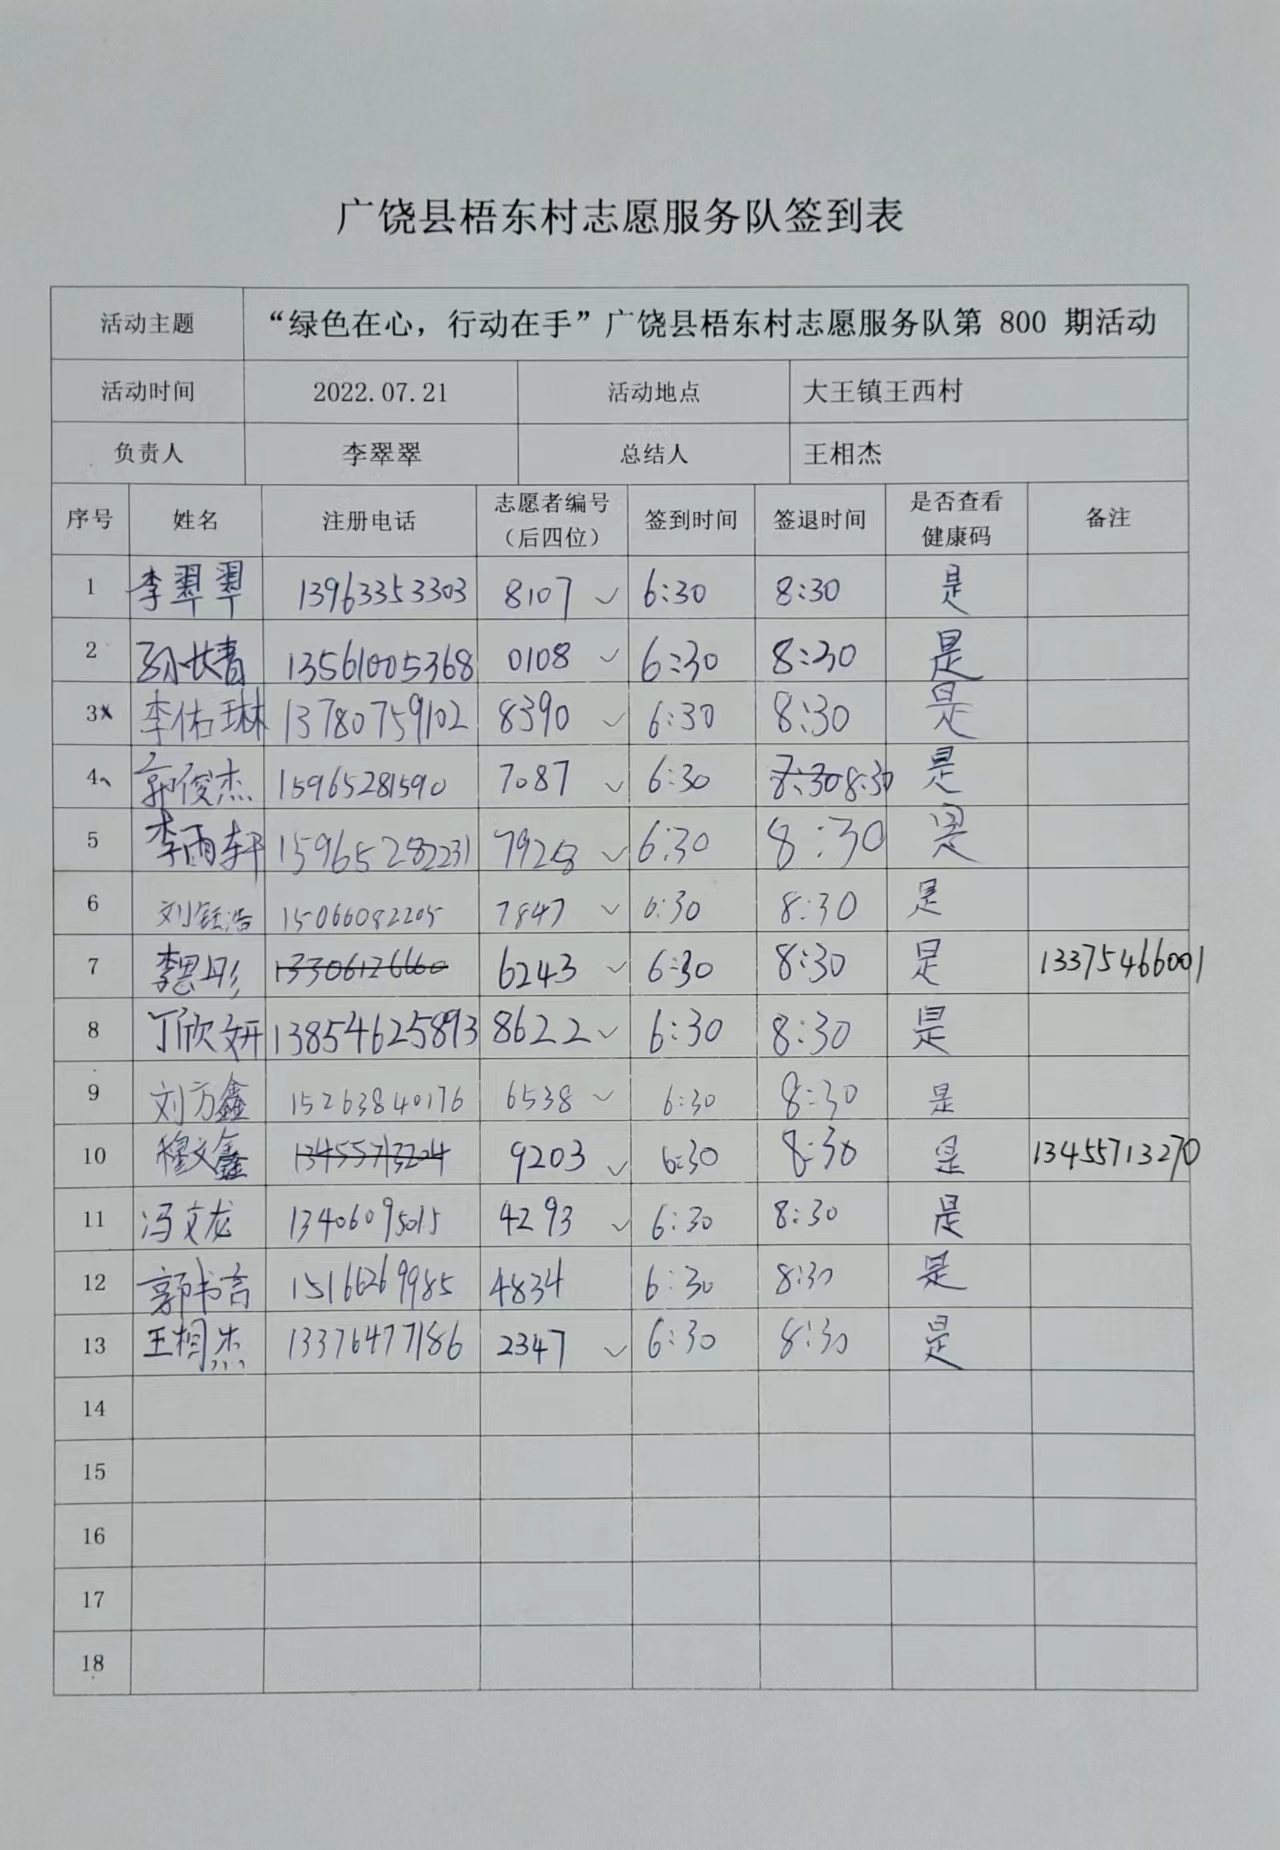 广饶县梧东村志愿服务队签到表
活动主题 “绿色在心，行动在手”广饶县梧东村志愿服务队第 800 期活动
活动时间 2022.07.21 活动地点 大王镇王西村
负责人 李翠翠 总结人 王相杰
序号 姓名 注册电话 志愿者编号（后四位） 签到时间 签退时间 是否查看健康码 备注
1 李翠翠 13963353303 8107 ✓ 6:30 8:30 是
2 孙长青 13561005368 0108 ✓ 6:30 8:30 是
3 李佑琳 13780759102 8390 ✓ 6:30 8:30 是
4 郭俊杰 15965281590 7087 ✓ 6:30 7:30 8:30 是
5 李雨轩 15965282231 ✓ 6:30 8:30 是
6 刘钰浩 15066082205 7847 ✓ 6:30 8:30 是
7 李思彤 13306126660 6243 ✓ 6:30 8:30 是 13375466001
8 丁欣妍 13854625893 8622 ✓ 6:30 8:30 是
9 刘方鑫 15263840176 6538 ✓ 6:30 8:30 是
10 穆文鑫 13455713204 9203 ✓ 6:30 8:30 是 13455713270
11 冯文龙 13406095015 4293 ✓ 6:30 8:30 是
12 郭书言 15166269985 4834 6:30 8:30 是
13 王相杰 13376477186 2347 ✓ 6:30 8:30 是
14
15
16
17
18